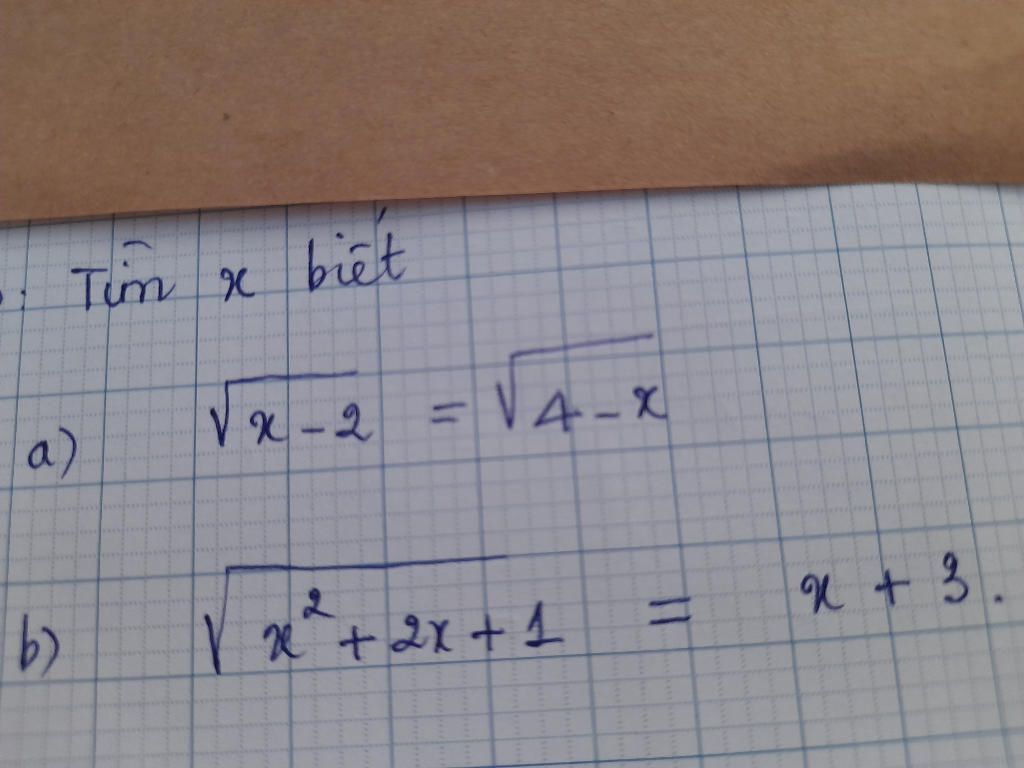 : Tìm x biết
a) √x - 2 = √4 - x
b) √x² + 2x + 1 = x + 3.